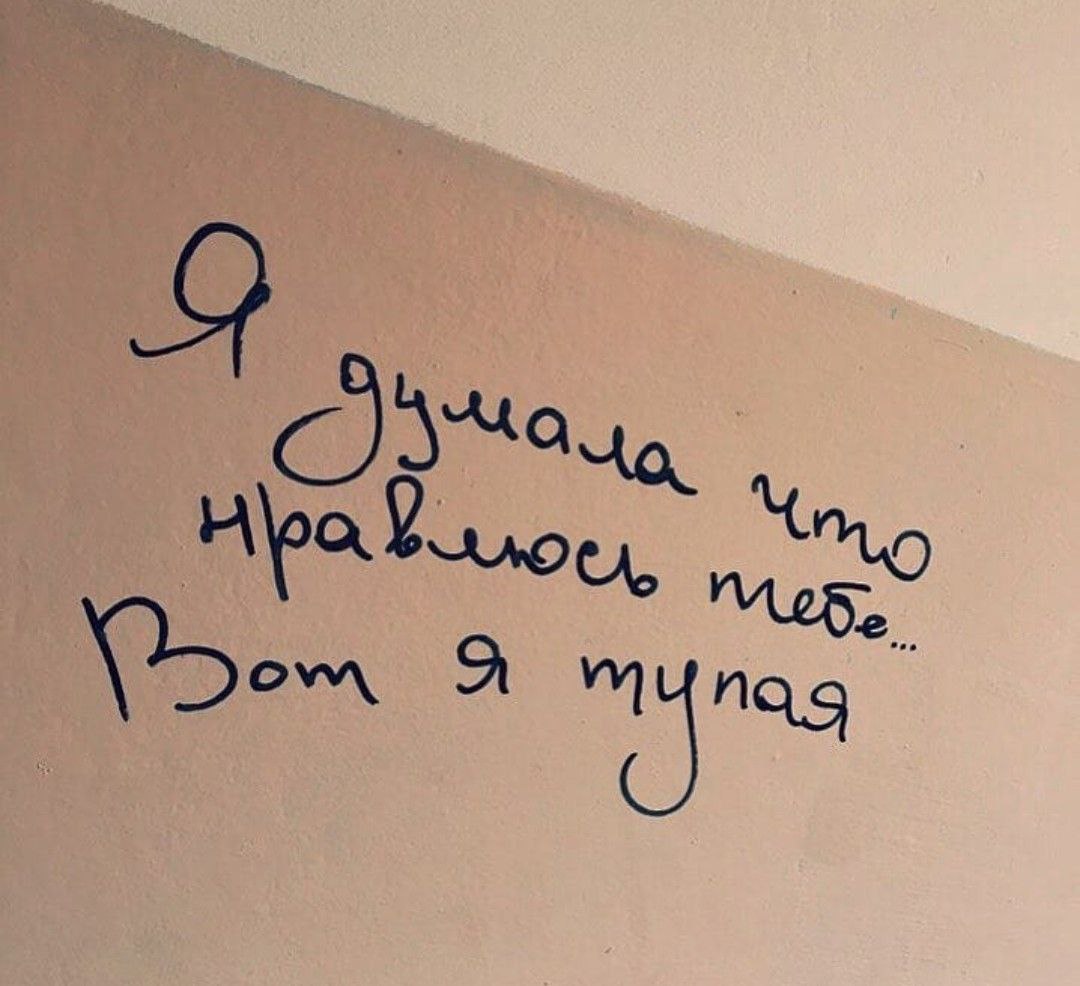 Я думала что
нравлюсь тебе...
Вот я тупая